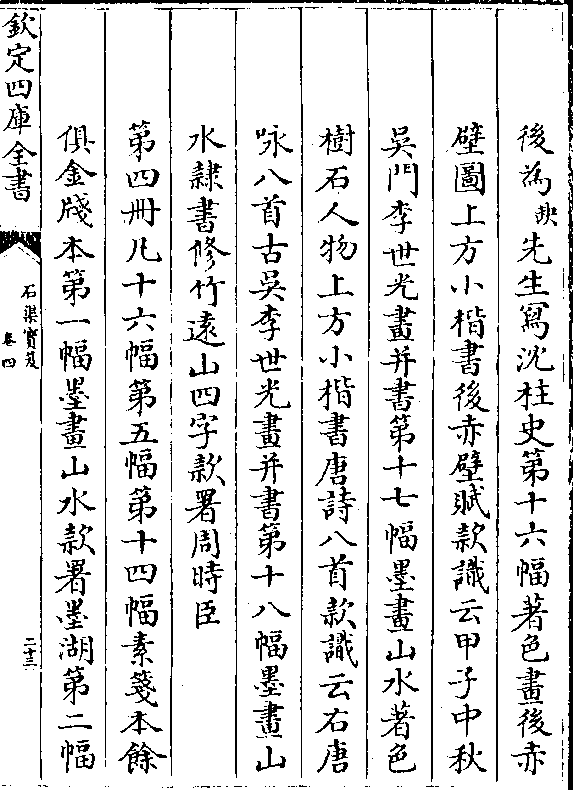 後為缺先生寫沈柱史第十六幅著色畫後赤
壁圖上方小楷書後赤壁賦款識云甲子中秋
吳門李世光畫并書第十七幅墨畫山水著色
樹石人物上方小楷書唐詩八首款識云右唐
咏八首古吳李世光畫并書第十八幅墨畫山
水隸書修竹遠山四字款署周時臣
第四冊凡十六幅第五幅第十四幅素箋本餘
俱金牋本第一幅墨畫山水款署墨湖第二幅
欽定四庫全書
石渠寳笈
卷四
二十三